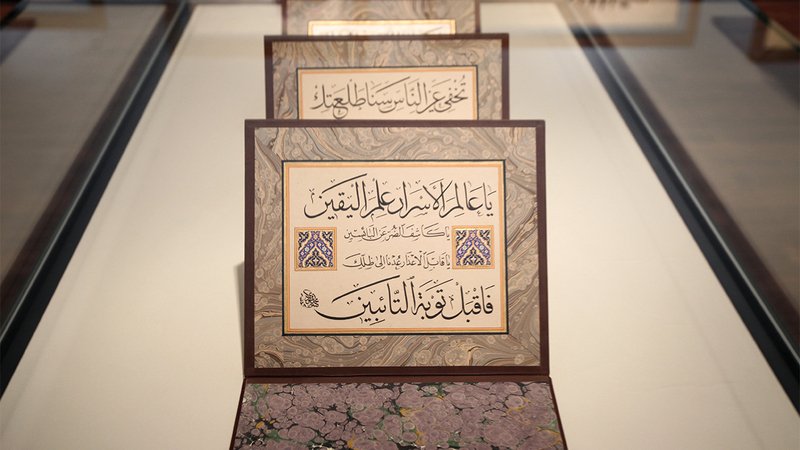 تُخْفِى عَنِ النَّاسِ سَنَا طَلْعَتِكَ
يَا عَالِمَ الْأَسْرَارِ عِلْمَ الْيَقِينِ
يَا كَاشِفَ الضُّرِّ عَنِ الْبَائِسِينَ
يَا قَابِلَ الْأَعْذَارِ عُدْنَا إِلَى ظِلِّكَ
فَاقْبَلْ تَوْبَةَ التَّائِبِينَ